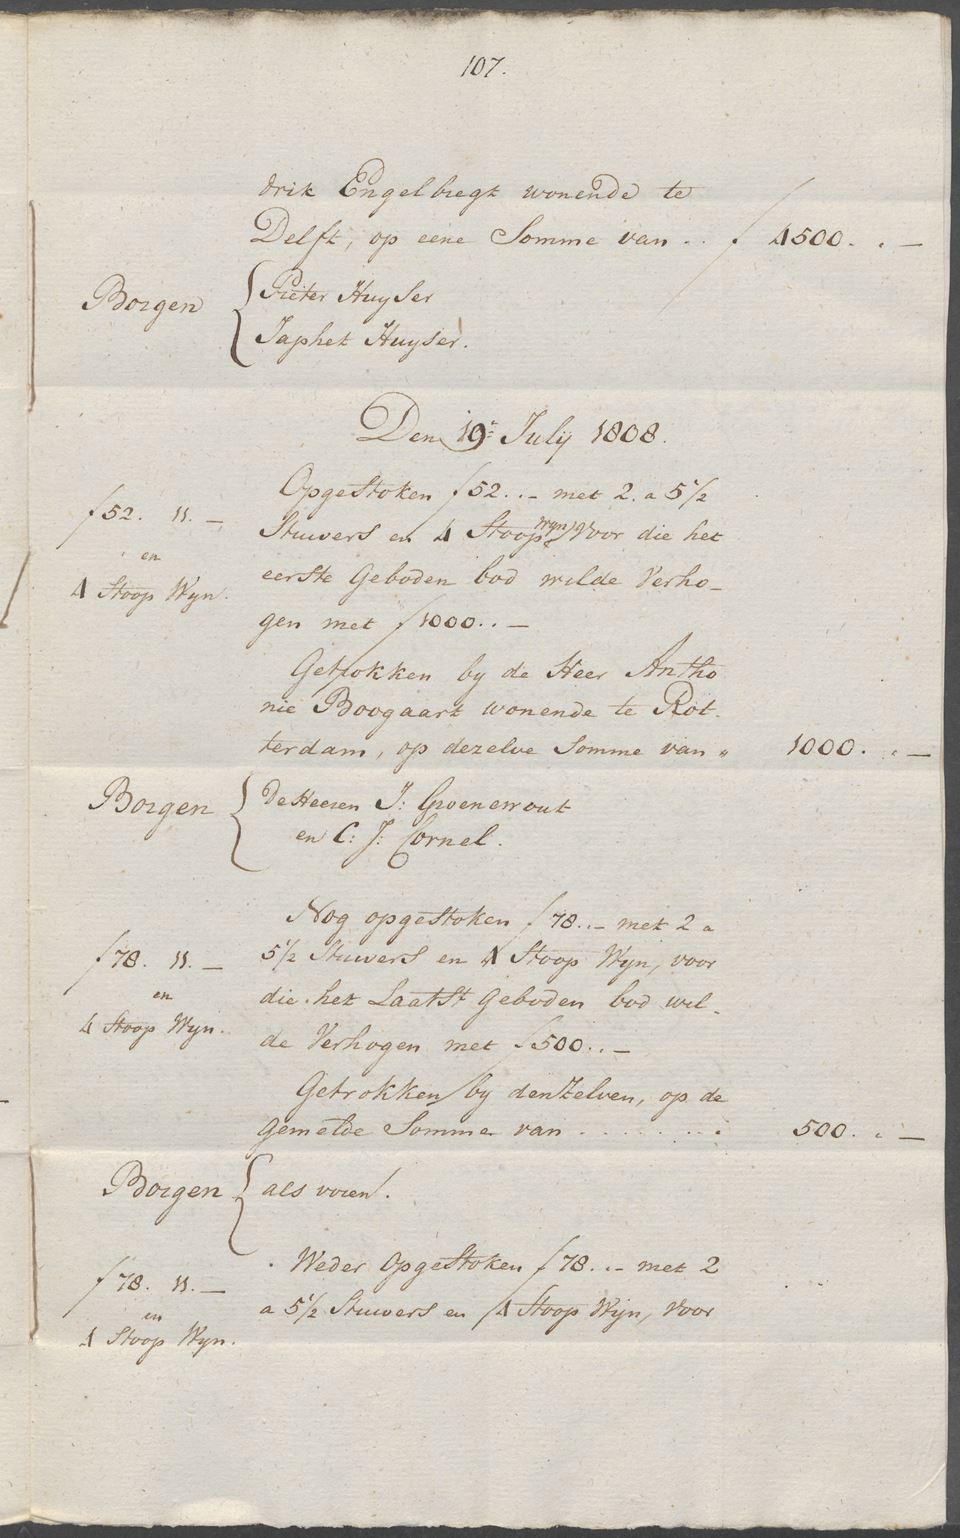 107.
drik Engelbregt wonende te
Delft, op eene Somme van .. f 4500. . —
Borgen
Pieter Huyser
Japhet Huyser.
Den 19e July 1808.
f 52. 11. —
en
4 Stoop Wyn.
Opgestoken f 52. .— met 2. a 5 1/2
Stuivers en 4 Stoop Wyn, Voor die het
eerste Geboden bod wilde Verho_
gen met f 1000. . —
Getrokken by de Heer Antho
nie Boogaart wonende te Rot_
terdam, op dezelve Somme van „ 1000. . —
Borgen
De Heeren J: Groenewout
en C: J: Cornel.
f 78. 11. —
en
4 Stoop Wyn.
Nog opgestoken f 78. .— met 2 a
5 1/2 Stuivers en 4 Stoop Wyn, voor
die het Laatst Geboden bod wil_
de Verhogen met f 500. . —
Getrokken by denzelven, op de
gemelde Somme van . . . . . . . . 500. . —
Borgen
als voren.
f 78. 11. —
en
4 Stoop Wyn.
Weder Opgestoken f 78. .— met 2
a 5 1/2 Stuivers en 4 Stoop Wyn, Voor